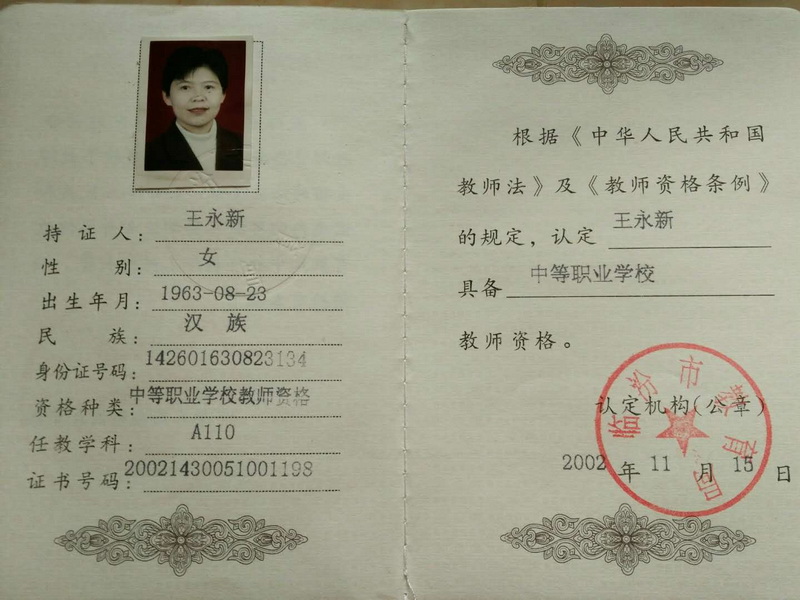 持证人：王永新
性别：女
出生年月：1963-08-23
民族：汉族
身份证号码：142601630823134
资格种类：中等职业学校教师资格
任教学科：A110
证书号码：20021430051001198
根据《中华人民共和国
教师法》及《教师资格条例》
的规定，认定 王永新
具备 中等职业学校
教师资格。
临汾市教育局
认定机构(公章)
2002 年 11 月 15 日